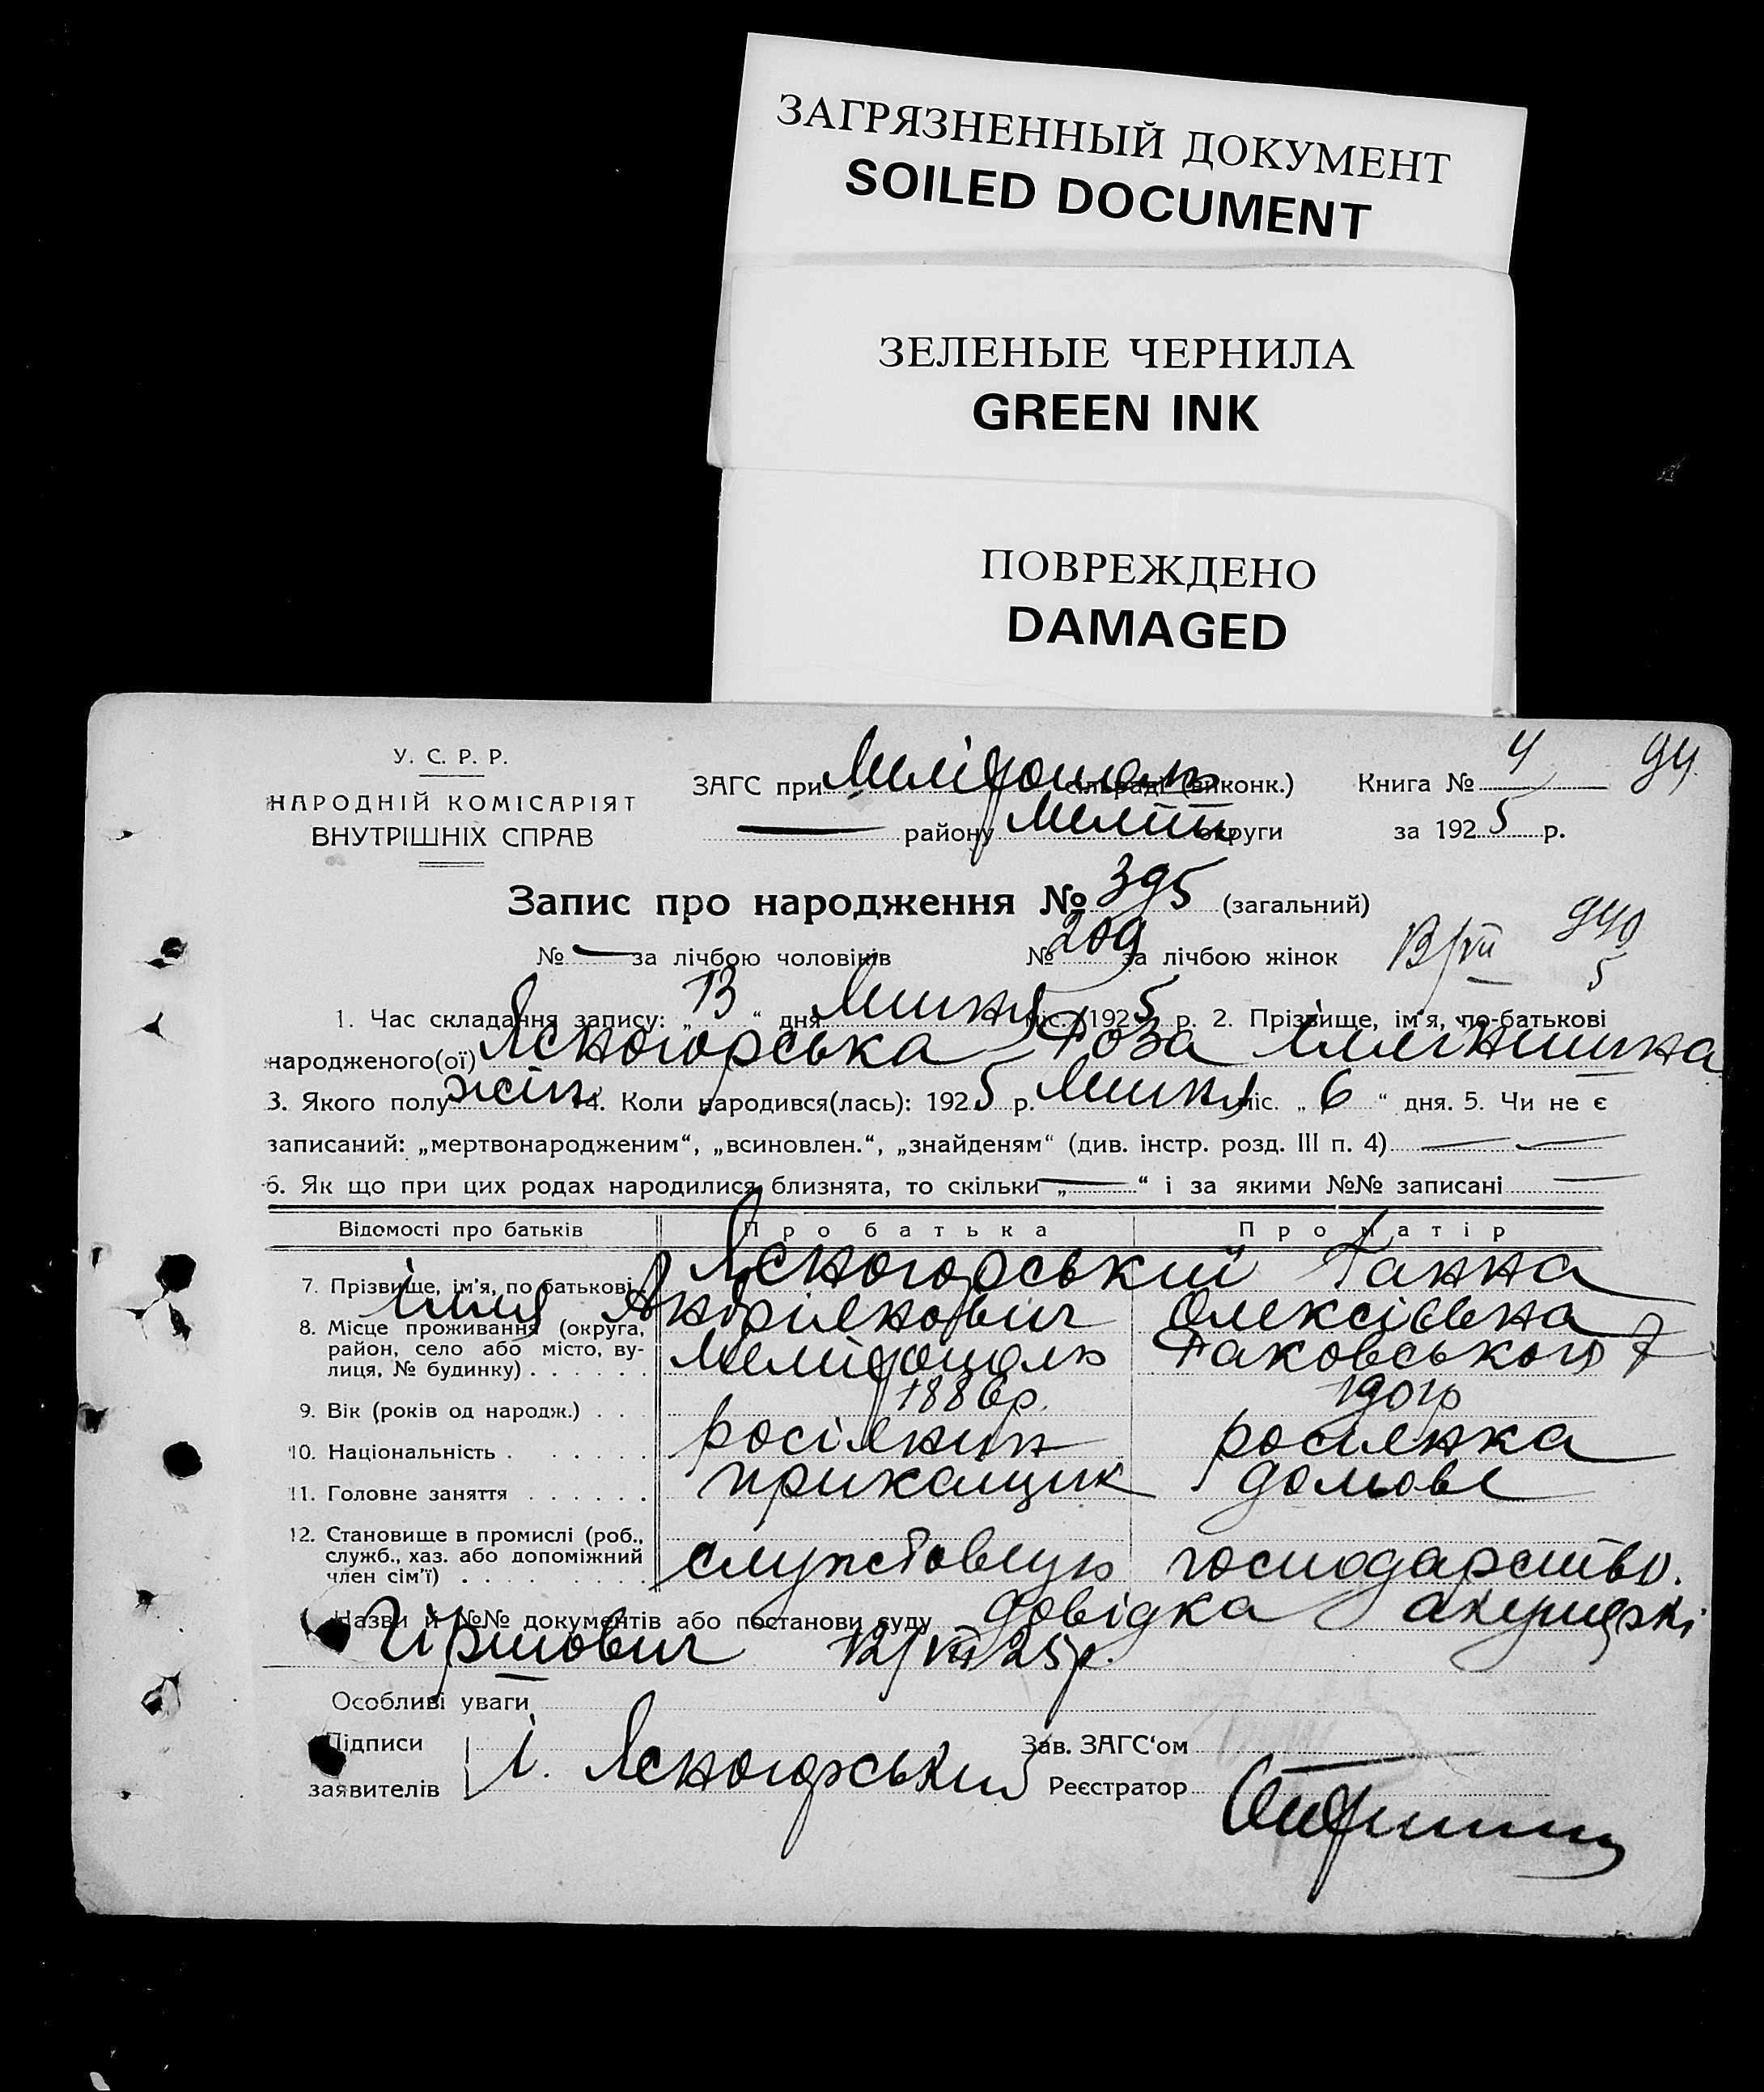 ЗАГРЯЗНЕННЫЙ ДОКУМЕНТ
SOILED DOCUMENT
ЗЕЛЕНЫЕ ЧЕРНИЛА
GREEN INK
ПОВРЕЖДЕНО
DAMAGED
У. С. Р. Р.
НАРОДНІЙ КОМІСАРІЯТ
ВНУТРІШНІХ СПРАВ
ЗАГС при Мелітополь сільраді (виконк.) Книга № 4 94
— району Меліт округи за 1925 р.
Запис про народження № 395 (загальний)
№ — за лічбою чоловіків № 209 за лічбою жінок 13/VII 940
5
1. Час складання запису: „13“ дня Липня міс. 1925 р. 2. Прізвище, ім'я, по-батькові
народженого(ої) Ясногорська Роза Іллінишна
3. Якого полу жін. 4. Коли народився(лась): 1925 р. Липня міс. „6“ дня. 5. Чи не є
записаний: „мертвонародженим“, „всиновлен.“, „знайденям“ (див. інстр. розд. III п. 4) — —
6. Як що при цих родах народилися близнята, то скільки „—“ і за якими №№ записані —
Відомості про батьків Про батька Про матір
7. Прізвище, ім'я, по батькові Ясногорський Ганна
Ілля Андріянович Олексіївна
8. Місце проживання (округа, район, село або місто, вулиця, № будинку) . . . . . . Мелітополь Раковського 7
9. Вік (років од народж.) . . 1886р. 1901р
10. Національність . . . . . . росіянин росіянка
11. Головне заняття . . . . . . прикащик домове
12. Становище в промислі (роб., служб., хаз. або допоміжний член сім'ї) . . . . . . службовець господарство.
Назви й №№ документів або постанови суду довідка акушерки
Гіршович 12/VII 25р.
Особливі уваги
Підписи
заявителів І. Ясногорський
Зав. ЗАГС'ом
Реєстратор